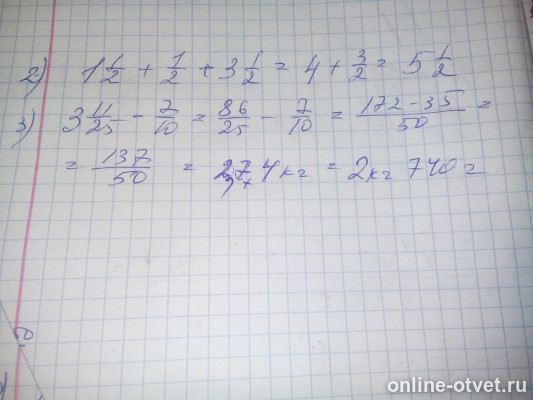 2) 1 1/2 + 1/2 + 3 1/2 = 4 + 3/2 = 5 1/2
3) 3 11/25 - 7/10 = 86/25 - 7/10 = (172-35)/50 =
= 137/50 = 2,74 кг = 2кг 740 г
online-otvet.ru